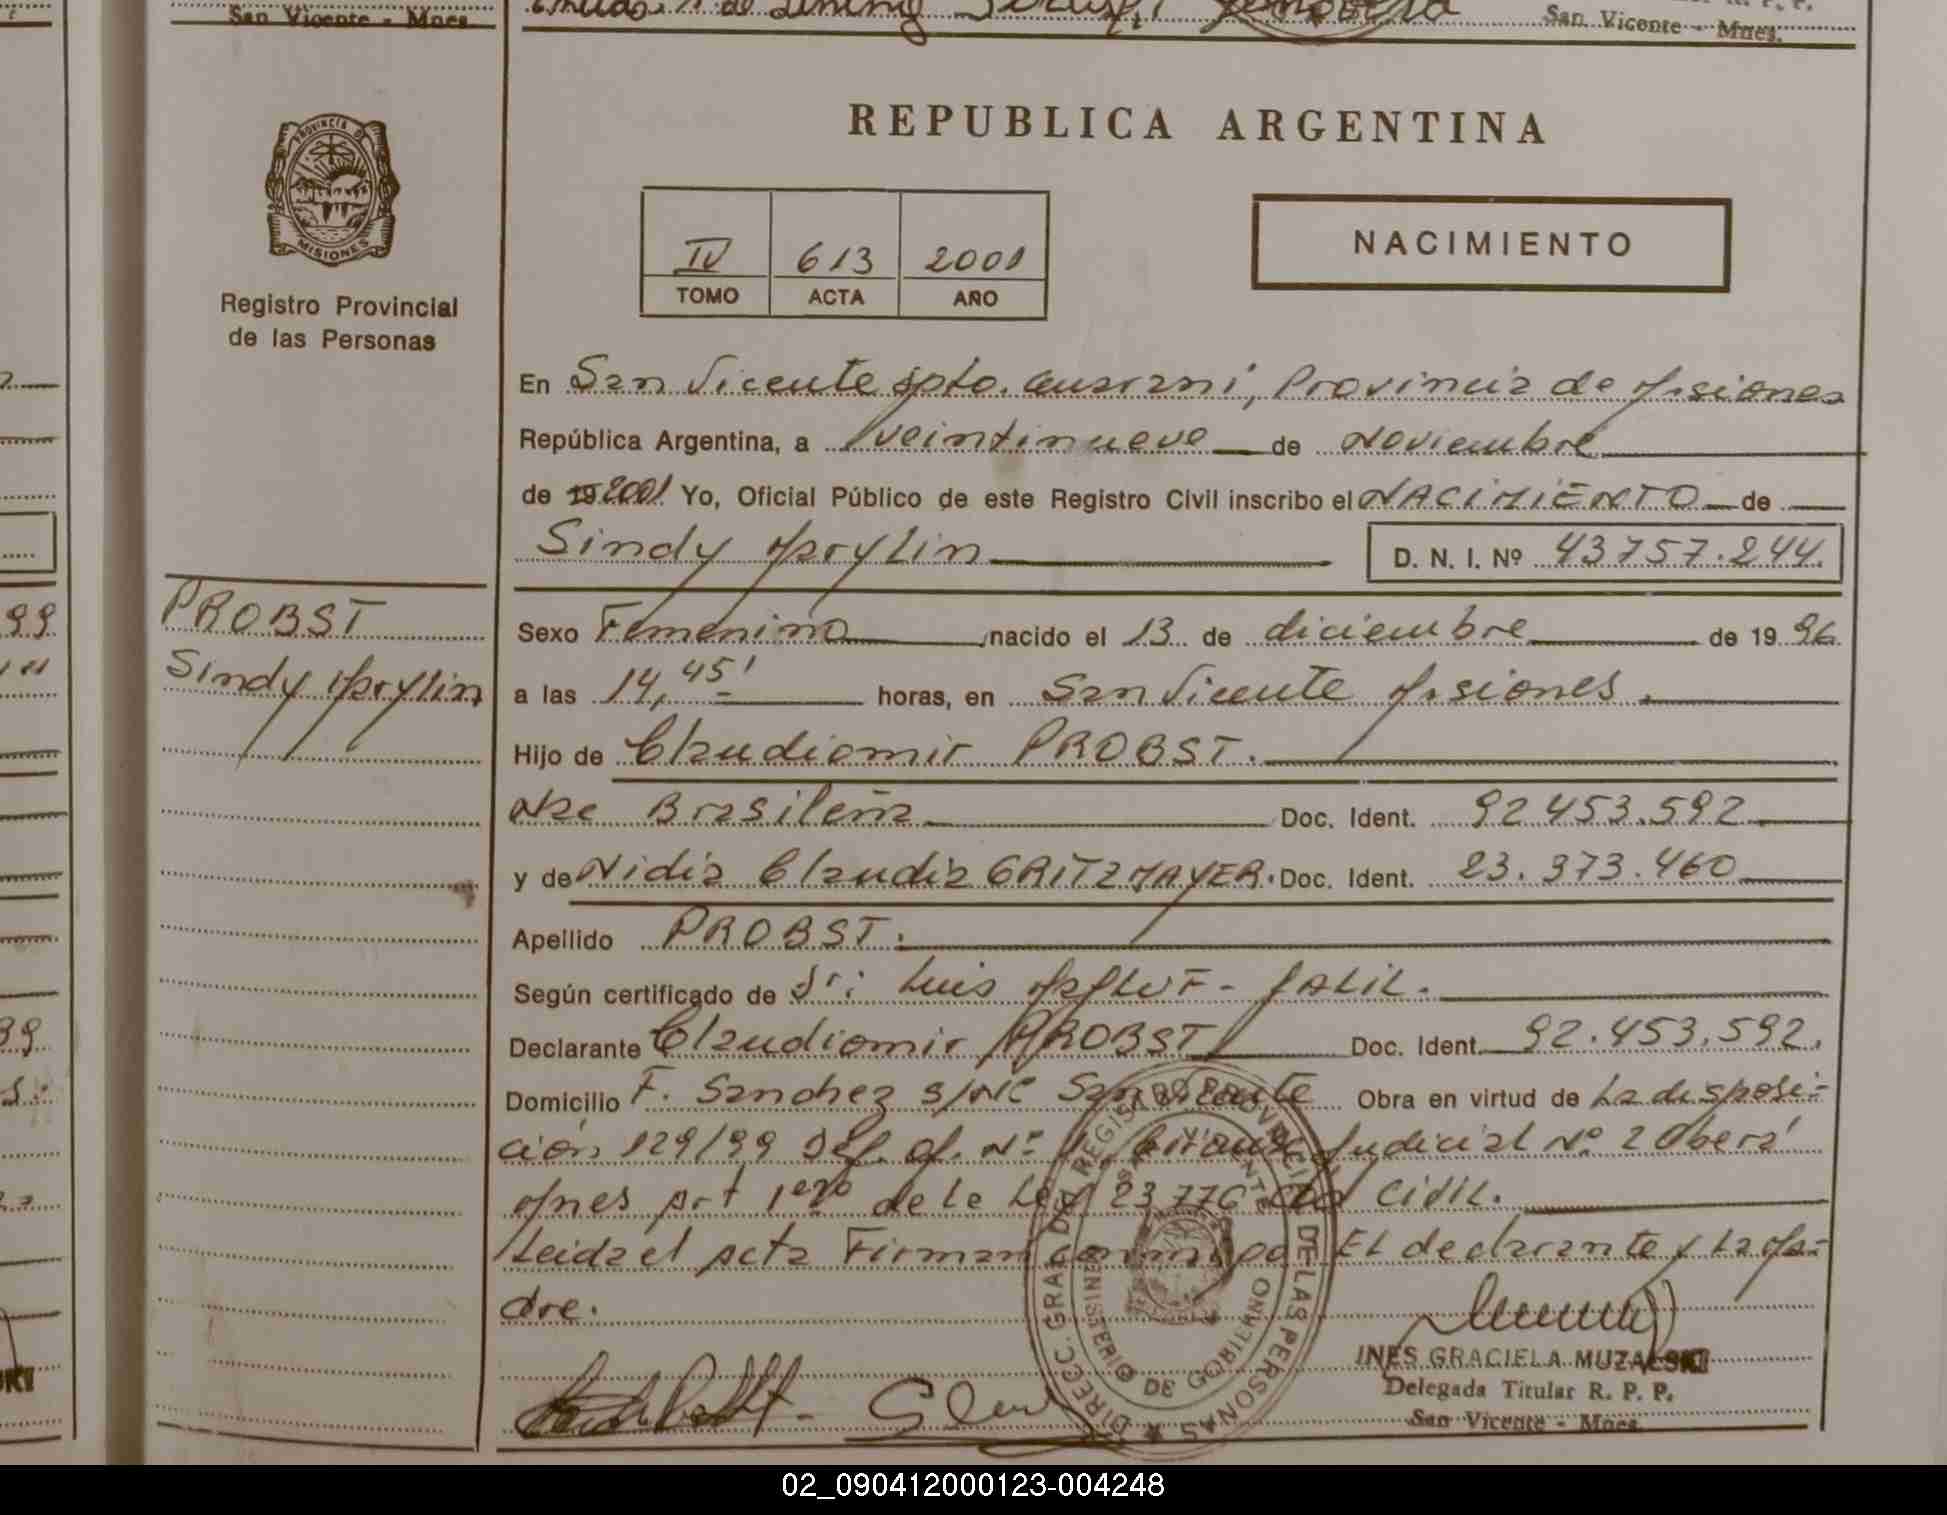 San Vicente - Mnes.
San Vicente - Mnes.
REPUBLICA ARGENTINA
PROVINCIA DE
MISIONES
Registro Provincial
de las Personas
IV 613 2001
TOMO ACTA AÑO
NACIMIENTO
En San Vicente Dpto. Guarani, Provincia de Misiones
República Argentina, a veintinueve de Noviembre
de 19 2001 Yo, Oficial Público de este Registro Civil inscribo el NACIMIENTO de
Sindy Marylin D. N. I. Nº 43757.244.
PROBST
Sindy Marylin
Sexo Femenino nacido el 13 de diciembre de 19 96
a las 14,45' horas, en San Vicente Misiones.
Hijo de Claudiomir PROBST.
Nac Brasileña Doc. Ident. 92453.592
y de Nidia Claudia GRITZMAYER. Doc. Ident. 23.373.460
Apellido PROBST.
Según certificado de Dr: Luis MAFLUF - JALIL.
Declarante Claudiomir PROBST Doc. Ident. 92.453.592.
Domicilio F. Sanchez S/Nº San Vicente Obra en virtud de La disposi-
ción 129/99 Def. Of. Nº 1 Judicial Nº 2 Oberá
Mnes Art 1ero de le Ley 23776 Civil.
Leida el Acta Firman conmigo El declarante y La Ma-
dre.
DIRECC. GRAL. DEL REGISTRO PROVINCIAL DE LAS PERSONAS
MINISTERIO DE GOBIERNO
SAN VICENTE
INES GRACIELA MUZALSKI
Delegada Titular R. P. P.
San Vicente - Mnes.
02_090412000123-004248